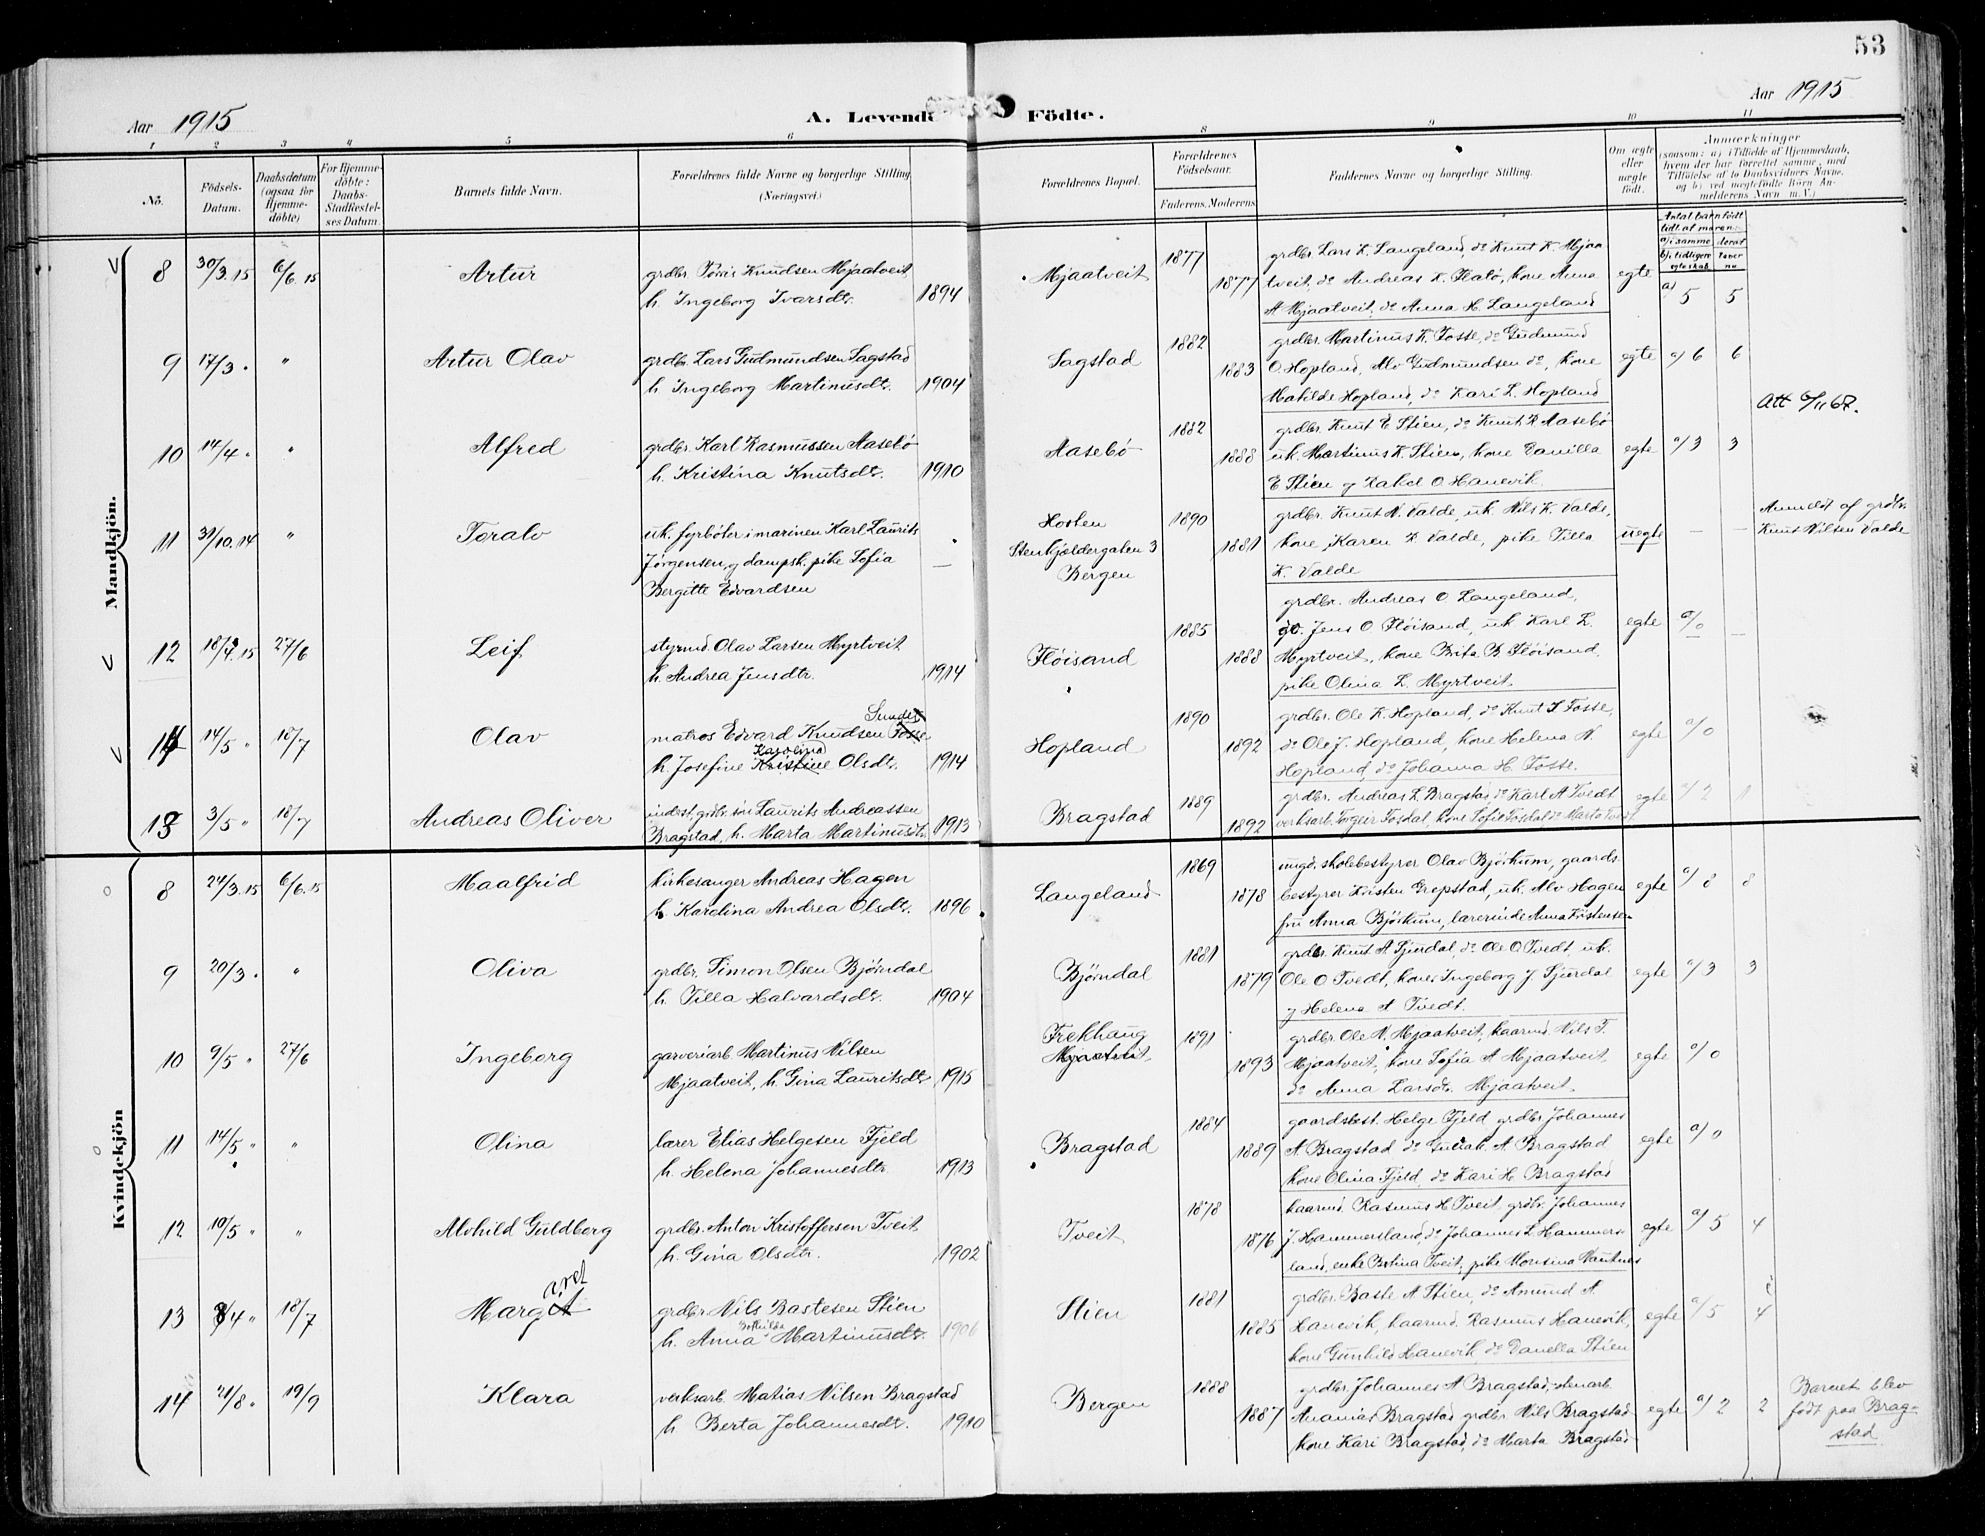 53
Aar 1915
A. Levende Födte.
Aar 1915
1 2 3 4 5 6 8 9 10 11
No.
Födsels-Datum.
Daabsdatum (ogsaa for Hjemmedöbte)
For Hjemmedöbte: Daabs-Stadfestelses Datum.
Barnets fulde Navn.
Forældrenes fulde Navne og borgerlige Stilling (Næringsvei.)
Forældrenes Bopæl.
Forældrenes Födselsaar.
Faderens. Moderens
Faddernes Navne og borgerlige Stilling.
Om ægte eller uægte födt.
Anmærkninger
(saasom: a) i Tilfælde af Hjemmedaab, hvem der har forrettet samme, med Tilföielse af to Daabsvidners Navne, og b) ved uægtefödte Börn Anmelderens Navn m. V.)
Antal barn födt
tidt af moren:
a) i samme
b) tidligere egteskab
derav lever nu
Mandkjön.
8 30/3.15 6/6.15 Artur
grdbr. Tøris Knudsen Mjaatveit
h. Ingeborg Ivarsdtr. 1894
Mjaatveit 1877 1877
grdbr. Lars K. Langeland, do Knut K. Mjaa
tveit, do Andreas K. Flatö, kone Anna
A Mjaatveit, do Anna H. Langeland
egte a) 5 5
9 17/3 " " Artur Olav
grdbr. Lars Gudmundsen Sagstad
h. Ingeborg Martinusdtr. 1904
Sagstad 1882 1883
grdbr. Martinus K. Fosse, do Gudmund
O. Hopland, Alv Gudmundsen do, kone
Matilde Hopland, do Kari L. Hopland
egte a) 6 6
Att 6/11 67.
10 14/4 " " Alfred
grdbr. Karl Rasmussen Aasebö
h. Kristina Knutsdtr. 1910
Aasebö 1882 1888
grdbr. Knut E Stien, do Knut R Aasebö
uk. Martinus K. Stien, kone Vanilla
E Stien og Rakel O. Hanevik.
egte a) 3 3
11 30/10.14 " Toralv
uk. fyrböter i marinen Karl Laurits
Jörgensen, og dampsk. pike Sofia
Bergitte Edvardsen
Hosten
Stenkjeldergaten 3
Bergen
1890 1881
grdbr. Knut N. Valde, uk Nils K. Valde,
kone Karen K. Valde, pike Tilla
K. Valde
uegte — —
Anmeldt af grdbr.
Knut Nilsen Valde
12 18/4.15 27/6 Leif
styrmd. Olav Larsen Myrtveit
h. Andrea Jensdtr. 1914
Flöisand 1885 1888
grdbr. Andreas O Langeland,
do. Jens O Flöisand, uk Karl L.
Myrtveit, kone Brita B. Flöisand,
pike Olina L. Myrtveit.
egte a) 0 —
14 14/5 " 18/7 Olav
matros Edvard Knudsen Fosse
h. Josefine Karolina Kristine Olsdtr. 1914
Hopland 1890 1892
grdbr. Ole K. Hopland, do Knut S Fosse,
do Ole J. Hopland, kone Helena N.
Hopland, do Johanna H. Fosse.
egte a) 0
13 3/5 " 18/7 Andreas Oliver
indest, grdbr. sön Laurits Andreassen
Bragstad, h. Marta Martinusdtr. 1913
Bragstad 1889 1892
grdbr. Andreas L. Bragstad, do Karl A Tvedt
verksarb. Torgeir Fosdal, kone Sofie Fosdal do Marta Tvedt
egte a) 2 1
Kvindekjön
8 24/3.15 6/6.15 Maalfrid
kirkesanger Andreas Hagen
h. Karolina Andrea Olsdtr. 1896
Langeland 1869 1878
ungd. skolebestyrer Olav Björkum, gaards
bestyrer Kristen Grepstad, uk. Alv Hagen
fru Anna Björkum, lærerinde Anna Kristensen
egte a) 8 8
9 20/3 " " Oliva
grdbr. Simon Olsen Björndal
h. Tilla Halvardsdtr. 1904
Björndal 1881 1879
grdbr. Knut A Fjuedal, do Ole O. Tvedt, uk.
Ole O Tvedt, kone Ingeborg J. Fjuedal
og Helena A Tvedt.
egte a) 3 3
10 9/5 " 27/6 Ingeborg
garveriarb. Martinus Nilsen
Mjaatveit, h. Gina Lauritsdtr. 1915
Frekhaug
Mjaatveit
1891 1893
grdbr. Ole N. Mjaatveit, kaarmd. Nils T.
Mjaatveit, kone Sofia A Mjaatveit,
do Anna Larsdtr. Mjaatveit
egte a) 0
11 14/5 " " Olina
lærer Elias Helgesen Fjeld
h. Helena Johannesdtr. 1913
Bragstad 1884 1889
gaardsbest. Helge Fjeld grdbr. Johannes
A Bragstad do A. Bragstad
kone Olina Fjeld, do Kari H. Bragstad
egte a) 0
12 10/5 " " Alvhild Guldborg
grdbr. Anton Kristoffersen Tveit
h. Gina Olsdtr. 1902
Tveit 1878 1876
kaarmd. Rasmus H. Tveit, grdbr. Johannes
J. Hammersland, do Johannes L. Hammers
land, enke Brtina Tveit, pike Monsina
egte a) 5 4
13 8/4 " 18/7 Margret
grdbr. Nils Bastesen Stien
h. Anna Bothilda Martinusdtr. 1906
Stien 1881 1885
grdbr. Baste A. Stien, do Amund A
Hanevik, kaarmd. Rasmus Hanevik,
kone Gunhild Hanevik, do Vanella Stien
egte a) 5 4
14 21/8 " 19/9 Klara
verksarb. Matias Nilsen Bragstad
h. Berta Johannesdtr. 1910
Bergen 1888 1887
grdbr. Johannes A Bragstad, stenarb.
Ananias Bragstad grdbr. Nils Bragstad
kone Kari Bragstad, do Marta Bragstad
egte a) 2 2
Barnet blev
födt paa Brag-
stad